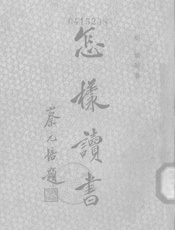 0415234
怎樣讀書
蔡元培題